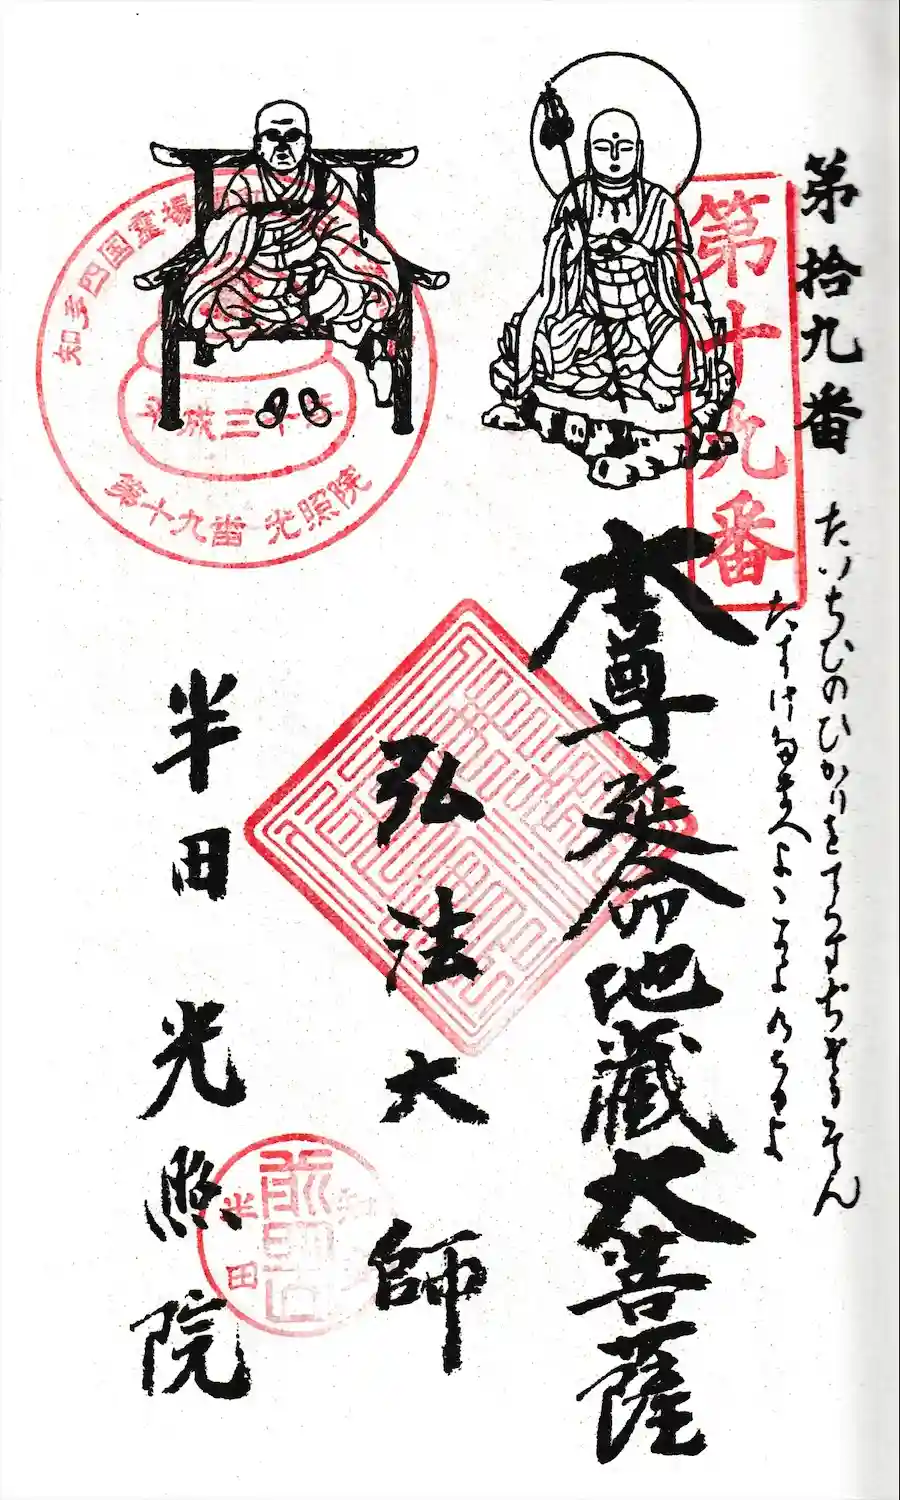 第拾九番
たいちひのひかりをてらすぢぞうそん
たすけたまへよこのよのちのよ
第十九番
本尊延命地蔵大菩薩
弘法大師
半田光照院
知多四国霊場
平成三十年
第十九番 光照院
半田